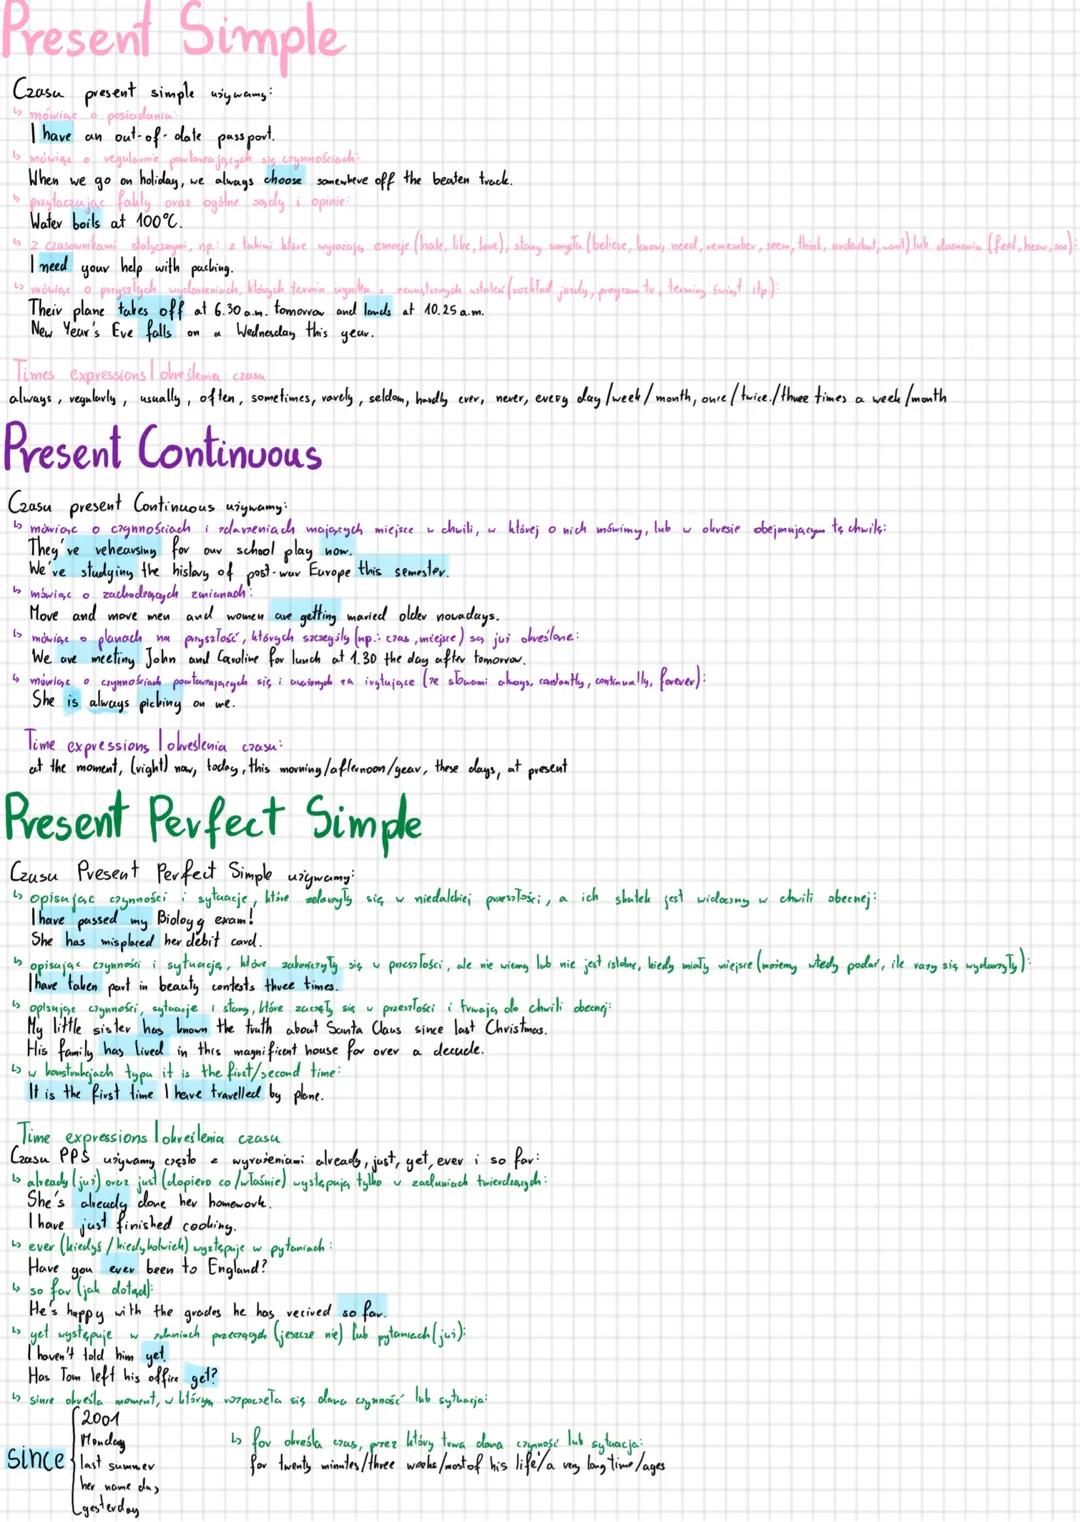 Present Simple
Czasu present simple używamy:
↳ mówiąc o posiadaniu:
I have an out-of-date passport.
↳ mówiąc o regularnie powtarzających się czynnościach:
When we go on holiday, we always choose somewhere off the beaten track.
↳ przytaczając fakty oraz ogólne sądy i opinie:
Water boils at 100°C.
↳ z czasownikami statycznymi, np.: z takimi które wyrażają emocje (hate, like, love), stany umysłu (believe, know, need, remember, seem, think, want) lub doznania (feel, hear, see):
I need your help with packing.
↳ mówiąc o przyszłych wydarzeniach, których termin wynika z zewnętrznych ustaleń (rozkład jazdy, program tv, terminy świąt itp):
Their plane takes off at 6.30 a.m. tomorrow and lands at 10.25 a.m.
New Year's Eve falls on a Wednesday this year.
Times expressions | określenia czasu
always, regularly, usually, often, sometimes, rarely, seldom, hardly ever, never, every day/week/month, once/twice/three times a week/month
Present Continuous
Czasu present Continuous używamy:
↳ mówiąc o czynnościach i zdarzeniach mających miejsce w chwili, w której o nich mówimy, lub w okresie obejmującym tę chwilę:
They've rehearsing for our school play now.
We've studying the history of post-war Europe this semester.
↳ mówiąc o zachodzących zmianach:
More and more men and women are getting maried older nowadays.
↳ mówiąc o planach na przyszłość, których szczegóły (np.: czas, miejsce) są już określone:
We are meeting John and Caroline for lunch at 1.30 the day after tomorrow.
↳ mówiąc o czynnościach powtarzających się i uważanych za irytujące (ze słowami always, constantly, continually, forever):
She is always picking on me.
Time expressions | określenia czasu:
at the moment, (right) now, today, this morning/afternoon/year, these days, at present
Present Perfect Simple
Czasu Present Perfect Simple używamy:
↳ opisując czynności i sytuacje, które zdarzyły się w niedalekiej przeszłości, a ich skutek jest widoczny w chwili obecnej:
I have passed my Biology exam!
She has misplaced her debit card.
↳ opisując czynności i sytuacje, które zakończyły się w przeszłości, ale nie wiemy lub nie jest istotne, kiedy miały miejsce (możemy wtedy podać, ile razy się wydarzyły):
I have taken part in beauty contests three times.
↳ opisując czynności, sytuacje i stany, które zaczęły się w przeszłości i trwają do chwili obecnej:
My little sister has known the truth about Santa Claus since last Christmas.
His family has lived in this magnificent house for over a decade.
↳ w konstrukcjach typu it is the first/second time:
It is the first time I have travelled by plane.
Time expressions | określenia czasu
Czasu PPS używamy często z wyrażeniami already, just, yet, ever i so far:
↳ already (już) oraz just (dopiero co/właśnie) występują tylko w zdaniach twierdzących:
She's already done her homework.
I have just finished cooking.
↳ ever (kiedyś/kiedykolwiek) występuje w pytaniach:
Have you ever been to England?
↳ so far (jak dotąd):
He's happy with the grades he has recived so far.
↳ yet występuje w zdaniach przeczących (jeszcze nie) lub pytaniach (już):
I haven't told him yet.
Has Tom left his office yet?
↳ since określa moment, w którym rozpoczęła się dana czynność lub sytuacja:
since
2001
Monday
last summer
her name day
yesterday
↳ for określa czas, przez który trwa dana czynność lub sytuacja:
for twenty minutes/three weeks/most of his life/a very long time/ages